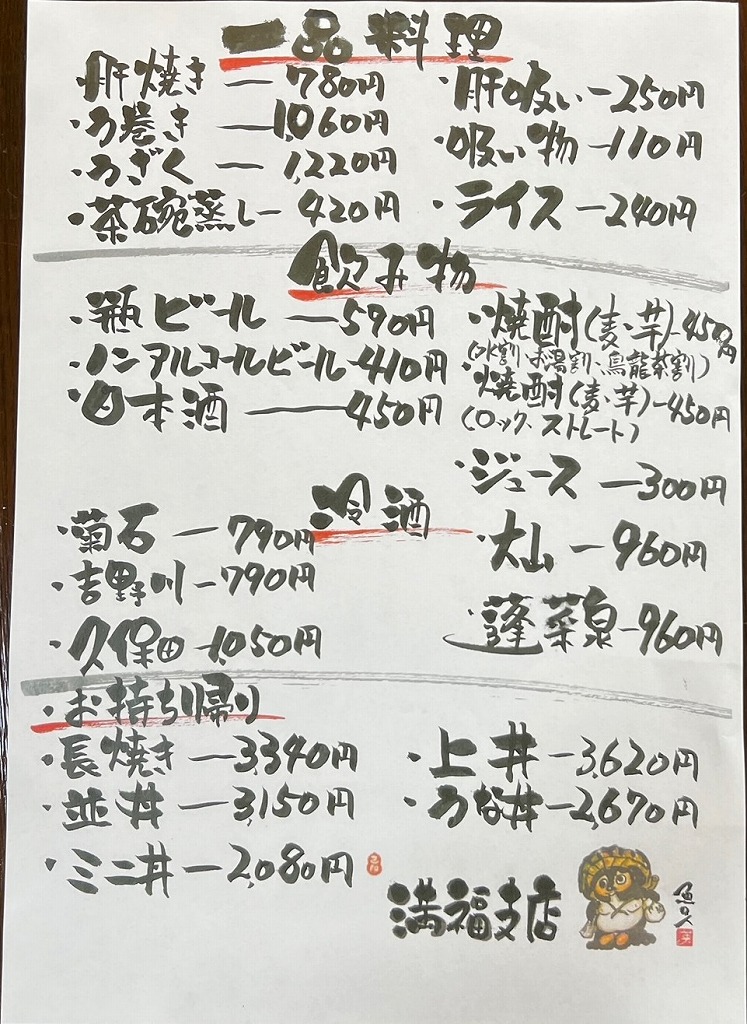 一品料理
・肝焼き ー 780円
・う巻き ー 1,060円
・うざく ー 1,220円
・茶碗蒸し ー 420円
・肝吸い ー 250円
・吸い物 ー 110円
・ライス ー 240円
飲み物
・瓶ビール ー 590円
・ノンアルコールビール ー 410円
・日本酒 ー 450円
・焼酎(麦・芋) ー 450円
(水割・お湯割・烏龍茶割)
・焼酎(麦・芋) ー 450円
(ロック・ストレート)
・ジュース ー 300円
冷酒
・菊石 ー 790円
・吉野川 ー 790円
・久保田 ー 1,050円
・大山 ー 960円
・蓬莱泉 ー 960円
・お持ち帰り
・長焼き ー 3,340円
・並丼 ー 3,150円
・ミニ丼 ー 2,080円
・上丼 ー 3,620円
・うな丼 ー 2,670円
満福支店